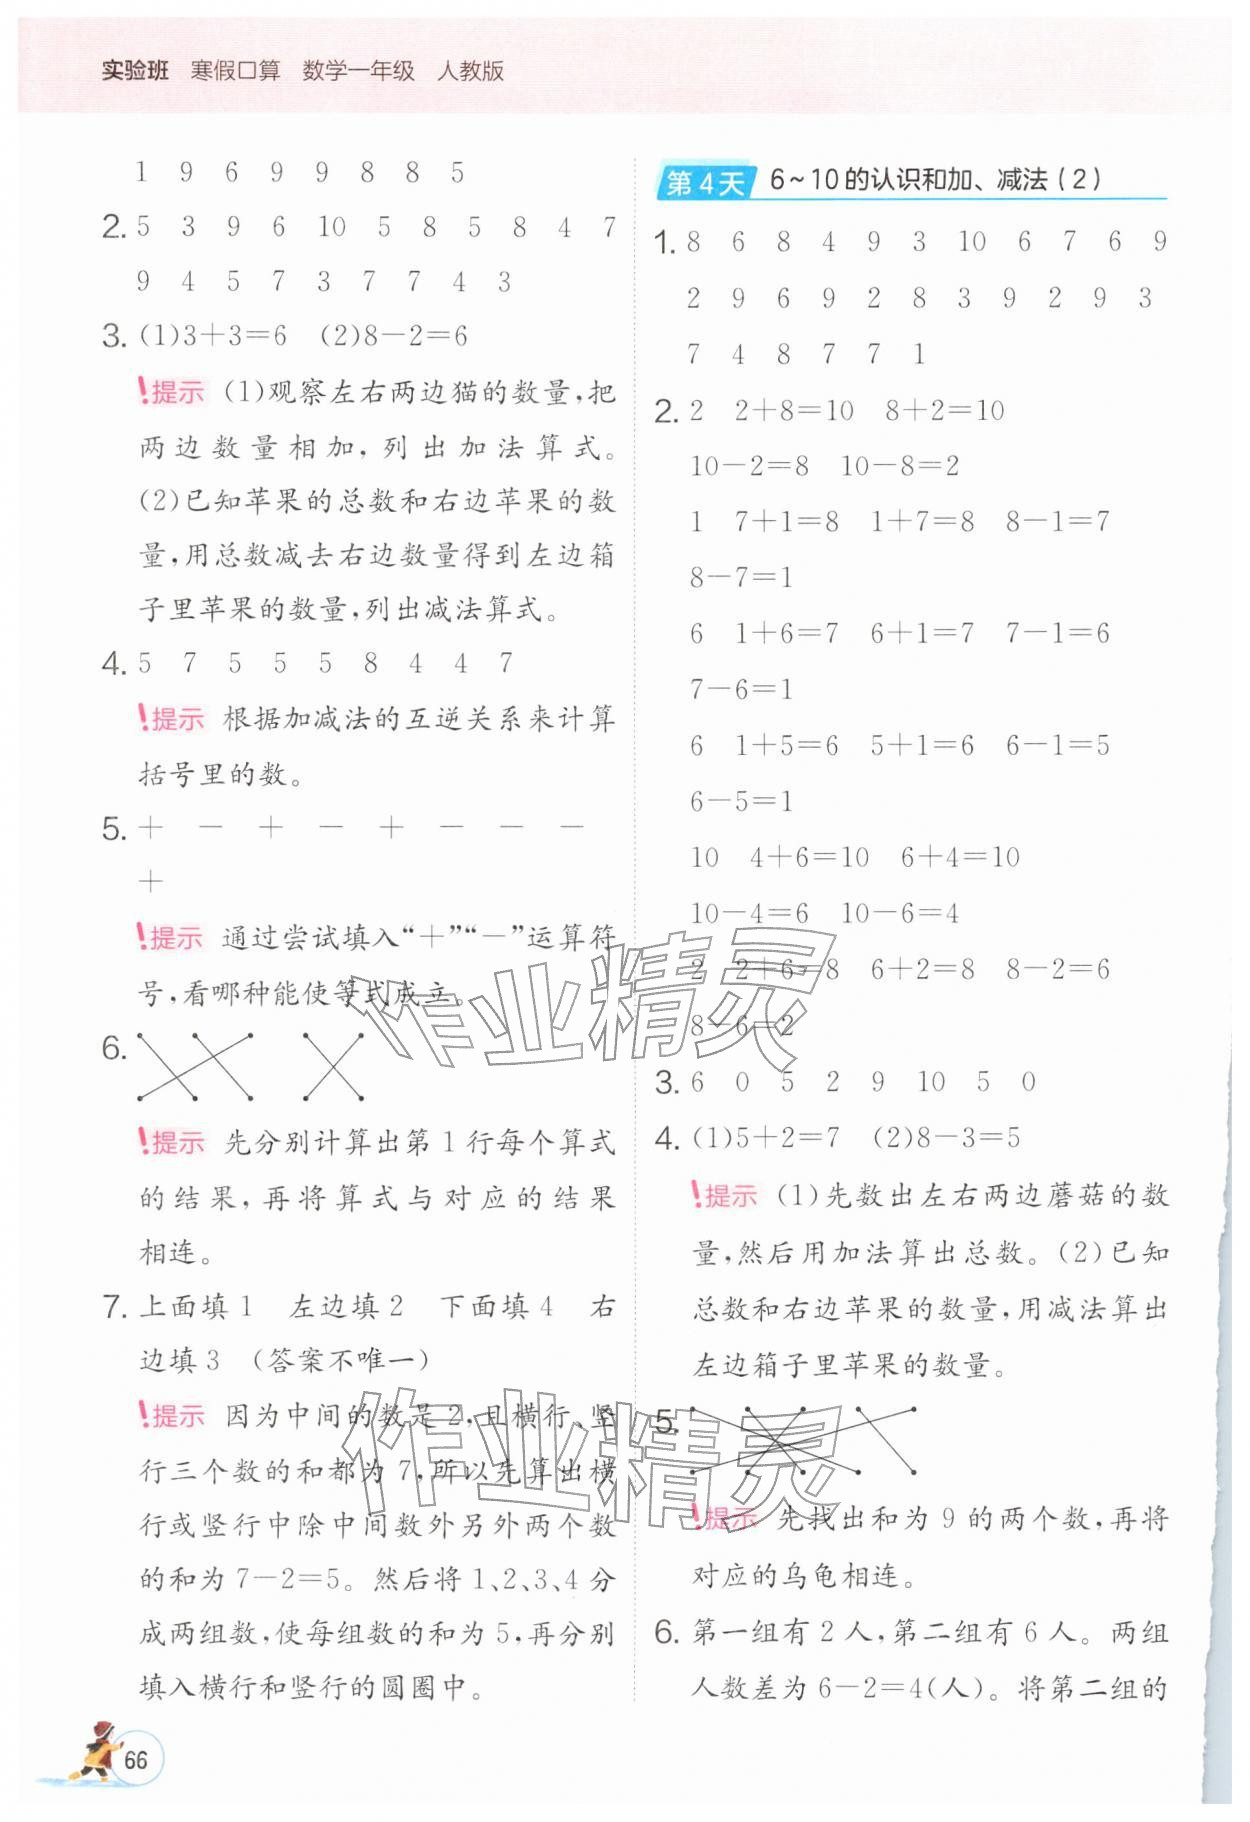 实验班 寒假口算 数学一年级 人教版
1 9 6 9 9 8 8 5
2. 5 3 9 6 10 5 8 5 8 4 7
9 4 5 7 3 7 7 4 3
3. (1)3+3=6 (2)8-2=6
!提示 (1)观察左右两边猫的数量,把
两边数量相加,列出加法算式。
(2)已知苹果的总数和右边苹果的数
量,用总数减去右边数量得到左边箱
子里苹果的数量,列出减法算式。
4. 5 7 5 5 5 8 4 4 7
!提示 根据加减法的互逆关系来计算
括号里的数。
5. + - + - + - - -
+
!提示 通过尝试填入“+”“-”运算符
号,看哪种能使等式成立。
6.
!提示 先分别计算出第1行每个算式
的结果,再将算式与对应的结果
相连。
7. 上面填1 左边填2 下面填4 右
边填3 (答案不唯一)
!提示 因为中间的数是2,且横行、竖
行三个数的和都为7,所以先算出横
行或竖行中除中间数外另外两个数
的和为7-2=5。然后将1、2、3、4分
成两组数,使每组数的和为5,再分别
填入横行和竖行的圆圈中。
66
第4天 6~10的认识和加、减法(2)
1. 8 6 8 4 9 3 10 6 7 6 9
2 9 6 9 2 8 3 9 2 9 3
7 4 8 7 7 1
2. 2 2+8=10 8+2=10
10-2=8 10-8=2
1 7+1=8 1+7=8 8-1=7
8-7=1
6 1+6=7 6+1=7 7-1=6
7-6=1
6 1+5=6 5+1=6 6-1=5
6-5=1
10 4+6=10 6+4=10
10-4=6 10-6=4
2 2+6=8 6+2=8 8-2=6
8-6=2
3. 6 0 5 2 9 10 5 0
4. (1)5+2=7 (2)8-3=5
!提示 (1)先数出左右两边蘑菇的数
量,然后用加法算出总数。(2)已知
总数和右边苹果的数量,用减法算出
左边箱子里苹果的数量。
5.
!提示 先找出和为9的两个数,再将
对应的乌龟相连。
6. 第一组有2人,第二组有6人。两组
人数差为6-2=4(人)。将第二组的
作业精灵
作业精灵